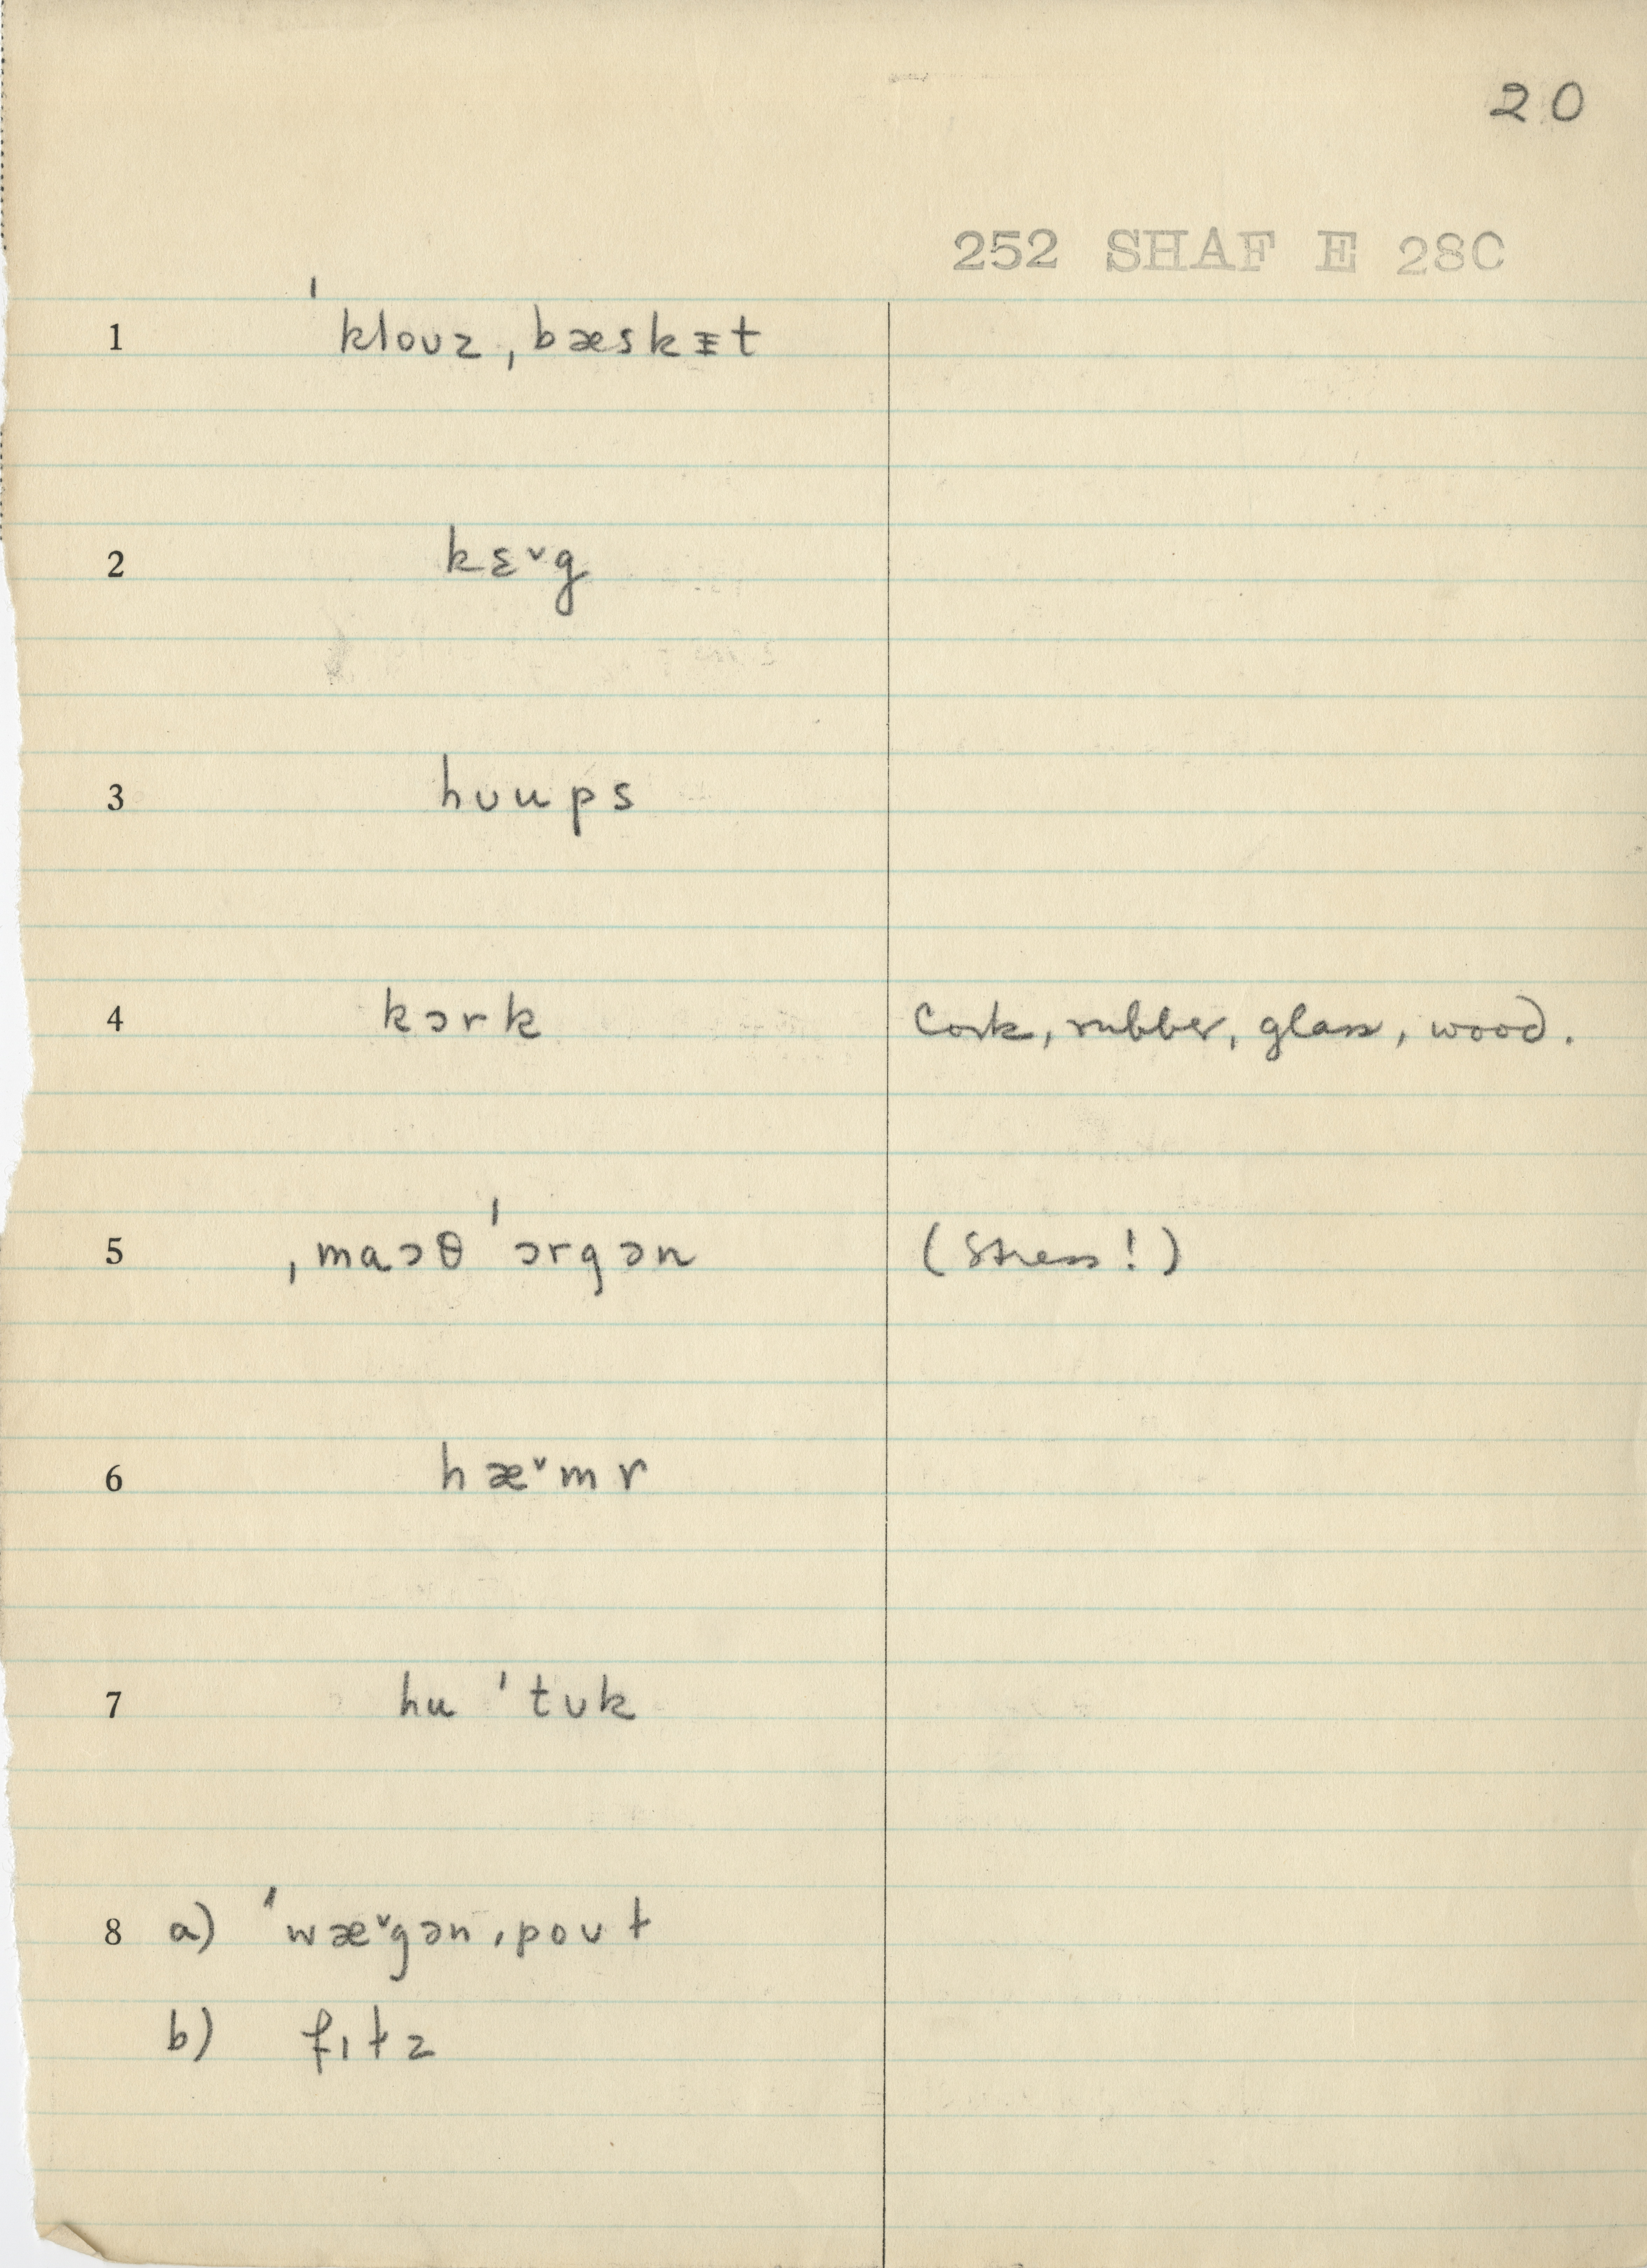 20
252 SHAF E 28C
1 ˈklouz ˌbæskᵻt
2 kɛ˅g
3 hʊups
4 kɔrk Cork, rubber, glass, wood.
5 ˌmaəθ ˈɔrgən (Stress!)
6 hæ˅mr
7 hu ˈtʊk
8 a) ˈwæ˅gən ˌpoʊɫ
b) fɪɫz